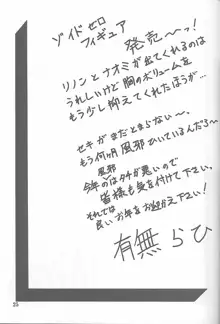 ゾイドゼロ
フィギュア
発売〜〜!
リノンとナオミが出てくれるのは
うれしいけど胸のボリュームを
もう少し抑えてくれたほうが…
セキがまだとまらない〜。
もう何ヶ月風邪ひいているんだろ〜
今年の風邪はタチが悪いので
皆様も気を付けて下さい。
それでは
良いお年をお迎え下さい!
有無らひ
25